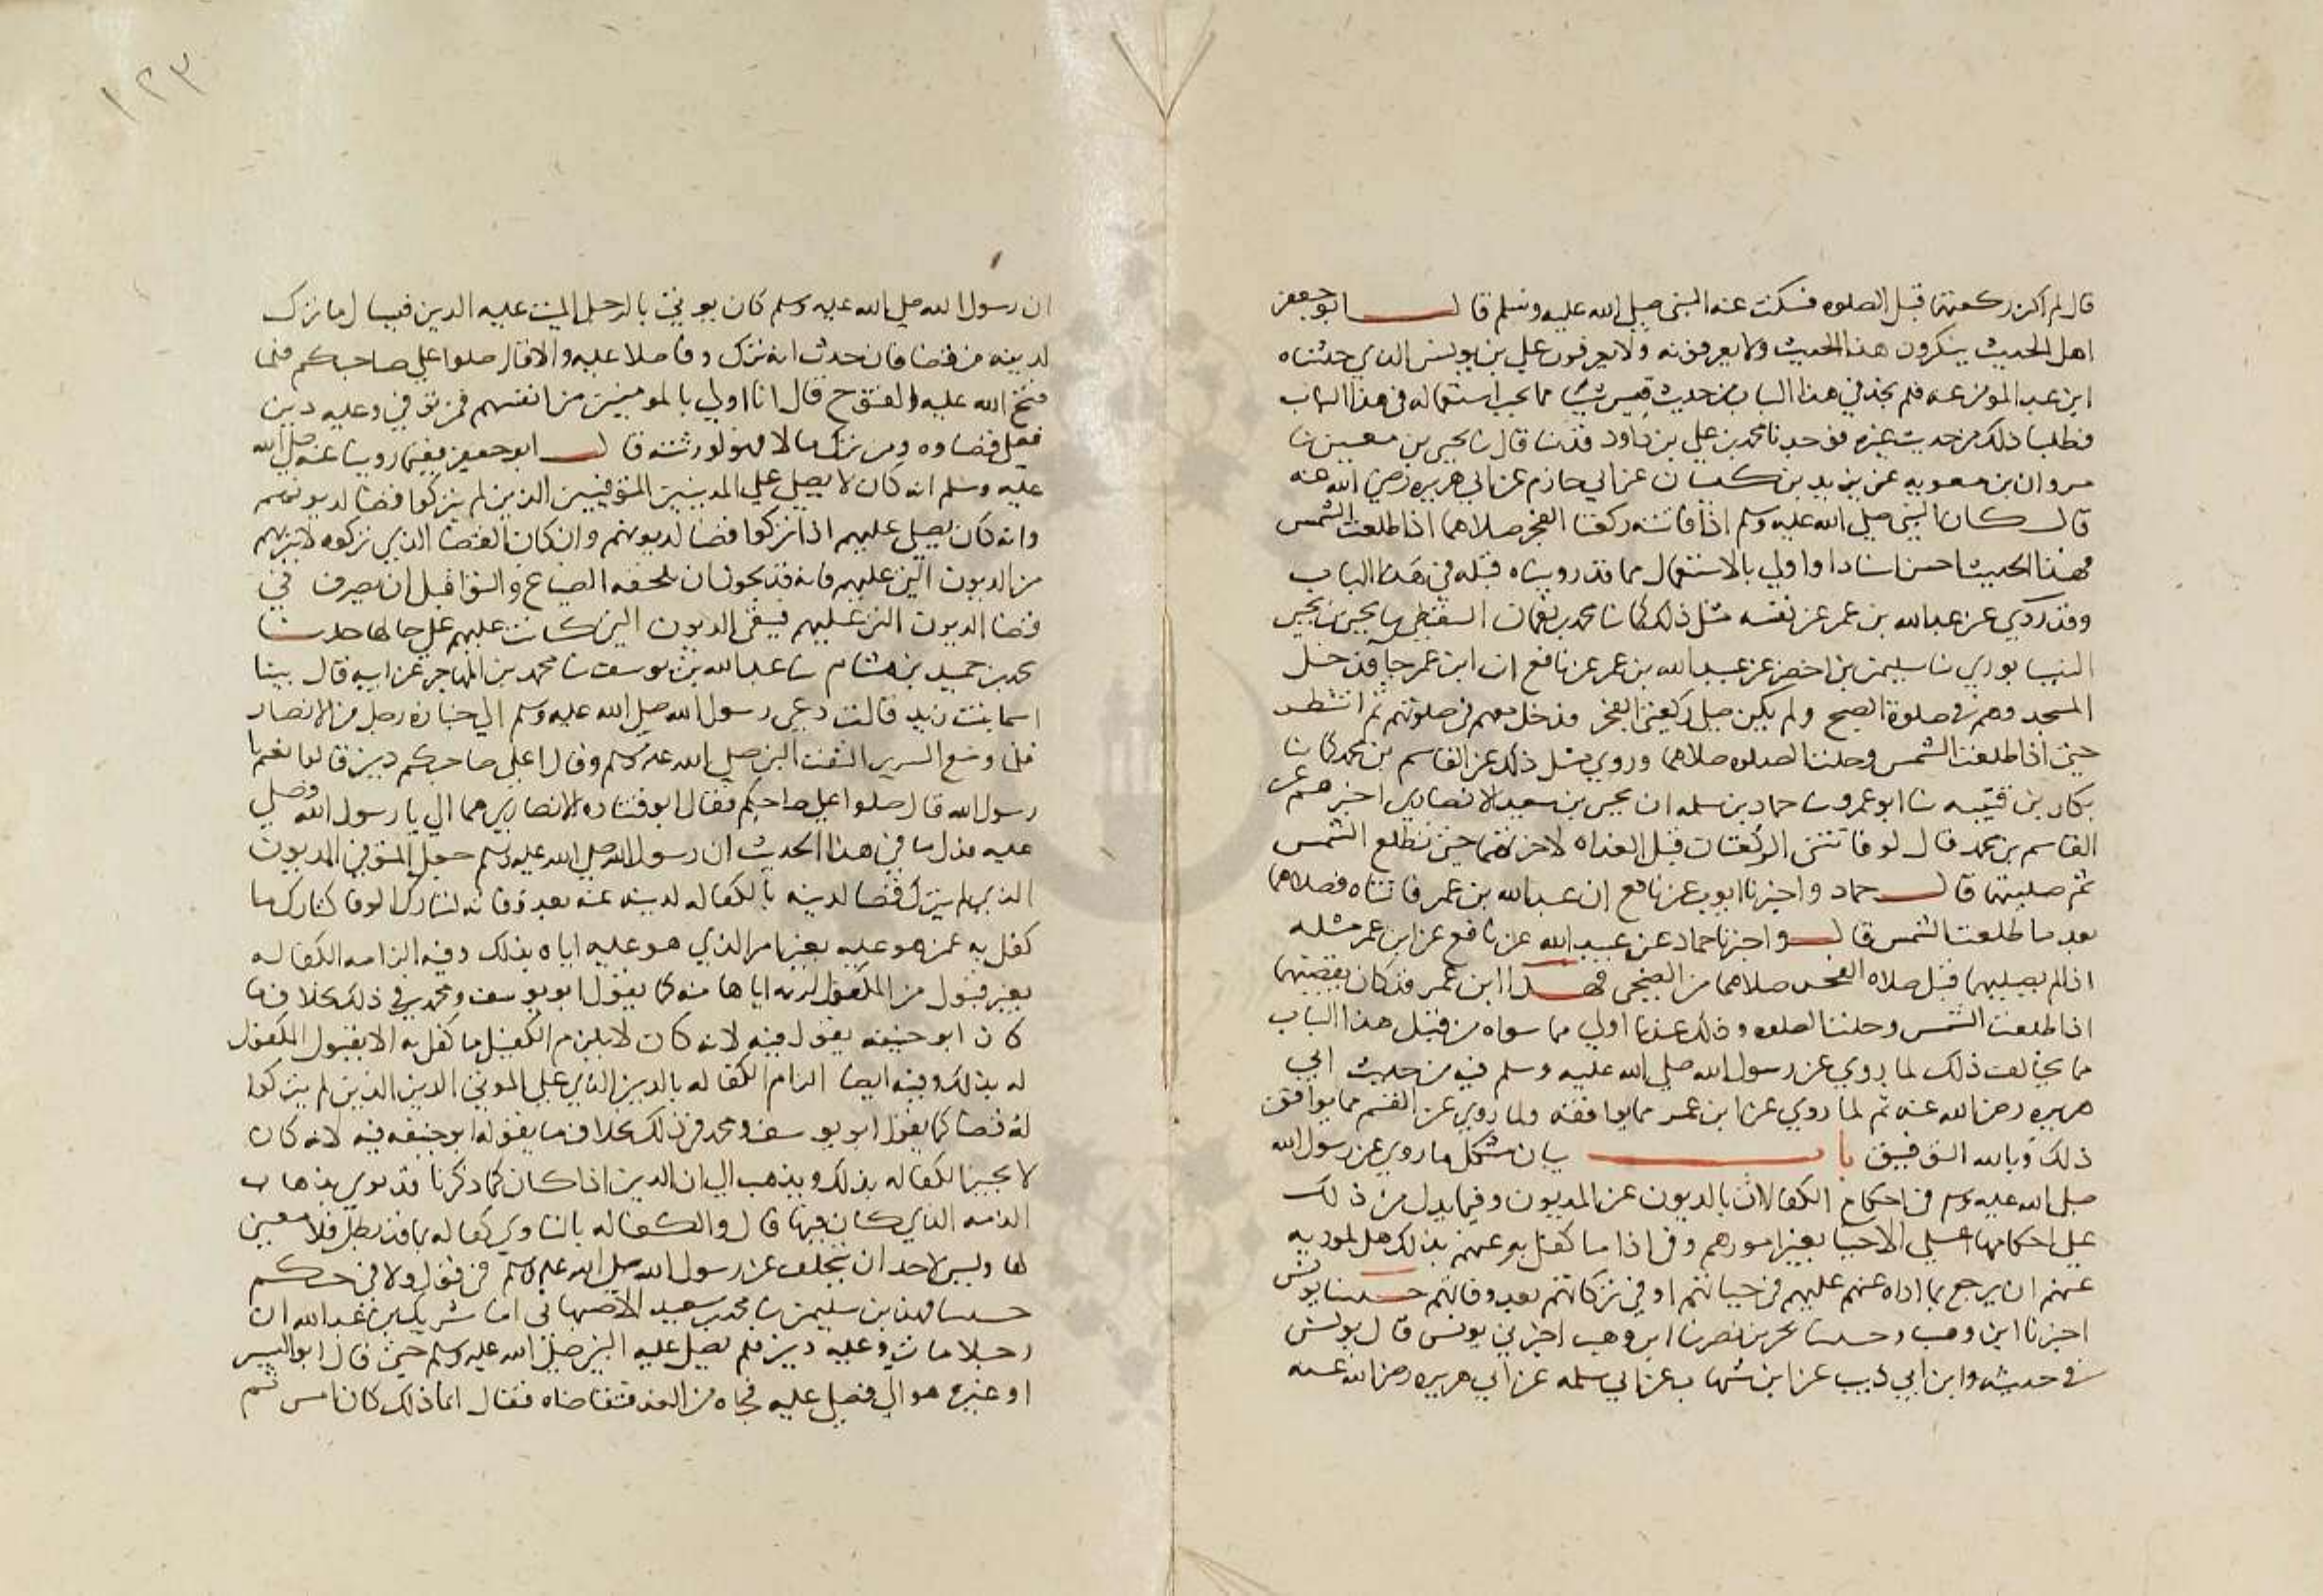 قال لم اكن ركعتهما قبل الصلوه فسكت عنه النبي صلى الله عليه وسلم قال ابو جعفر
اهل الحديث ينكرون هذا الحديث ولا يعرفونه ولا يعرفون علي بن يونس الذي حدثناه
ابن عبد المومن عنه فلم نجد في هذا الباب من حديث قيس شيئا مما يجب استعماله في هذا الباب
فطلبنا ذلك من حديث غيره فوجدنا محمد بن علي بن داود قد نا قال نا يحيى بن معين نا
مروان بن معويه عن يزيد بن كيسان عن ابي حازم عن ابي هريره رضي الله عنه
قال كان النبي صلى الله عليه وسلم اذا فاتته ركعتا الفجر صلاهما اذا طلعت الشمس
فهذا الحديث احسن اسنادا واولى بالاستعمال مما قد رويناه قبله في هذا الباب
وقد روي عن عبد الله بن عمر عن نفسه مثل ذلك كما نا محمد بن نعمان السقطي نا يحيى بن يحيى
النيسابوري نا سليم بن اخضر عن عبيد الله بن عمر عن نافع ان ابن عمر جا فدخل
المسجد وهم في صلوة الصبح ولم يكن صلى ركعتي الفجر فدخل معهم في صلوتهم ثم انتظر
حتى اذا طلعت الشمس وحلت الصلوه صلاهما وروي مثل ذلك عن القاسم بن محمد كما نا
بكار بن قتيبه نا ابو عمر نا حماد بن سلمه ان يحيى بن سعيد الانصاري اخبرهم عن
القاسم بن محمد قال لو فاتتني الركعتان قبل الغداه لاخرتهما حتى تطلع الشمس
ثم صليتهما قال حماد واخبرنا ايوب عن نافع ان عبد الله بن عمر فاتتاه فصلاهما
بعد ما طلعت الشمس قال واخبرنا حماد عن عبيد الله عن نافع عن ابن عمر مثله
اذا لم يصليهما قبل صلاه الفجر صلاهما من الضحى فهذا ابن عمر قد كان يقضيهما
اذا طلعت الشمس وحلت الصلوه وذلك عندنا اولى مما سواه من قبل هذا الباب
مما يخالف ذلك لما روي عن رسول الله صلى الله عليه وسلم فيه من حديث ابي
هريره رضي الله عنه ثم لما روي عن ابن عمر مما يوافقه ولما روي عن القسم مما يوافق
ذلك وبالله التوفيق باب بيان مشكل ما روي عن رسول الله
صلى الله عليه وسلم في احكام الكفالات بالديون عن المديون وفيما يدل من ذلك
على احكامها على الاحيا بغير امورهم وفي اذا ما كفل به عنهم بذلك هل لموديه
عنهم ان يرجع بما اداه عنهم عليهم في حياتهم او في تركاتهم بعد وفاتهم حدثنا يونس
اخبرنا ابن وهب وحدثنا بحر بن نصر نا ابن وهب اخبرني يونس قال يونس
في حديثه وابن ابي ذيب عن ابن شهاب عن ابي سلمه عن ابي هريره رضي الله عنه
١٢٣
ان رسول الله صلى الله عليه وسلم كان يوتى بالرجل الميت عليه الدين فيسال ما ترك
لدينه من قضا فان حدث انه ترك وفا صلا عليه والا قال صلوا على صاحبكم فلما
فتح الله عليه الفتوح قال انا اولى بالمومنين من انفسهم فمن توفي وعليه دين
فعلي قضاوه ومن ترك مالا فهو لورثته قال ابو جعفر ففيما روينا عنه صلى الله
عليه وسلم انه كان لا يصلي على المدينين المتوفيين الذين لم يتركوا قضا لديونهم
وانه كان يصلي عليهم اذا تركوا قضا لديونهم وان كان القضا الذي تركوه لا يبريهم
من الديون التي عليهم فانه قد يجوز ان يلحقه الضياع والتوا قبل ان يصرف في
قضا الديون التي عليهم فيبقى الديون التي كانت عليهم على حالها حدثنا
محمد بن حميد بن هشام نا عبد الله بن يوسف نا محمد بن المهاجر عن ابيه قال بينا
اسما بنت زيد قالت دعي رسول الله صلى الله عليه وسلم الى جنازه رجل من الانصار
فلما وضع السرير التفت النبي صلى الله عليه وسلم وقال اعلى صاحبكم دين قالوا نعم يا
رسول الله قال صلوا على صاحبكم فقال ابو قتاده الانصاري هما الي يا رسول الله فصلى
عليه فدل ما في هذا الحديث ان رسول الله صلى الله عليه وسلم جعل المتوفى المديون
الذي لم يترك قضا لدينه بالكفاله لدينه عنه بعد وفاته لتارك الوفا كتاركها
كفل به عمن هو عليه بغير امر الذي هو عليه اياه بذلك وفيه الزامه الكفاله
بغير قبول من المكفول له اياها منه كما يقول ابو يوسف ومحمد في ذلك بخلاف ما
كان ابو حنيفه يقول فيه لانه كان لا يلزم الكفيل ما كفل به الا بقبول المكفول
له بذلك وفيه ايضا الزام الكفاله بالدين الذي على الموتى الدين الذين لم يتركوا
له قضا كما يقول ابو يوسف ومحمد في ذلك بخلاف ما يقوله ابو حنيفه فيه لانه كان
لا يجيز الكفاله بذلك ويذهب الى ان الدين اذا كان كما ذكرنا قد توي بذهاب
الذمه الذي كان فيها قال والكفاله بالتاوي كفاله بما قد بطل فلا معنى
لها وليس لاحد ان يتخلف عن رسول الله صلى الله عليه وسلم في قول ولا في حكم
حدثنا فهد بن سليمن نا محمد بن سعيد الاصبهاني انا شريك بن عبد الله ان
رجلا مات وعليه دين فلم يصل عليه النبي صلى الله عليه وسلم حتى قال ابو اليسر
او غيره هو الي فصلى عليه فجاه من الغد فتقاضاه فقال انما ذلك كان امس ثم